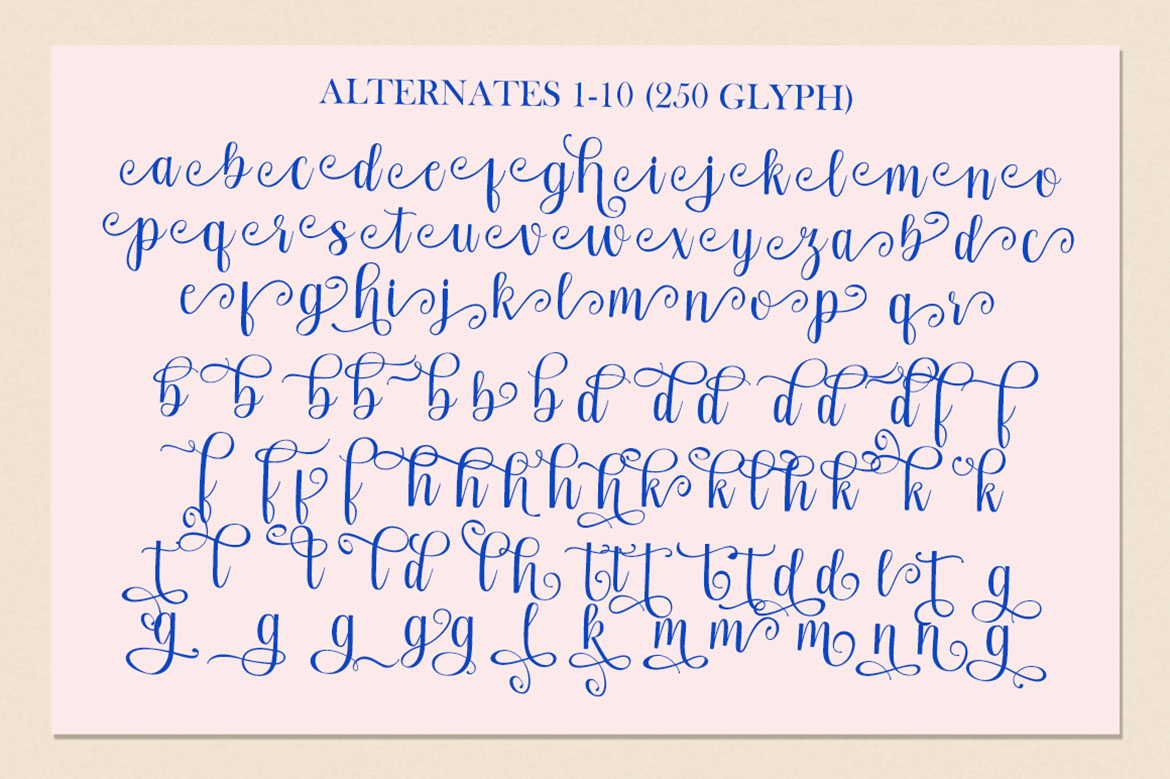 ALTERNATES 1-10 (250 GLYPH)
a b c d e f g h i j k l m n o
p q r s t u v w x y z a b d c
e f g h i j k l m n o p q r
b b b b b b b d d d d d d f f
f f f f h h h h h k k l h k k k
t l l l d l h t t t t t d d l t g
g g g g g l k m m m n n g